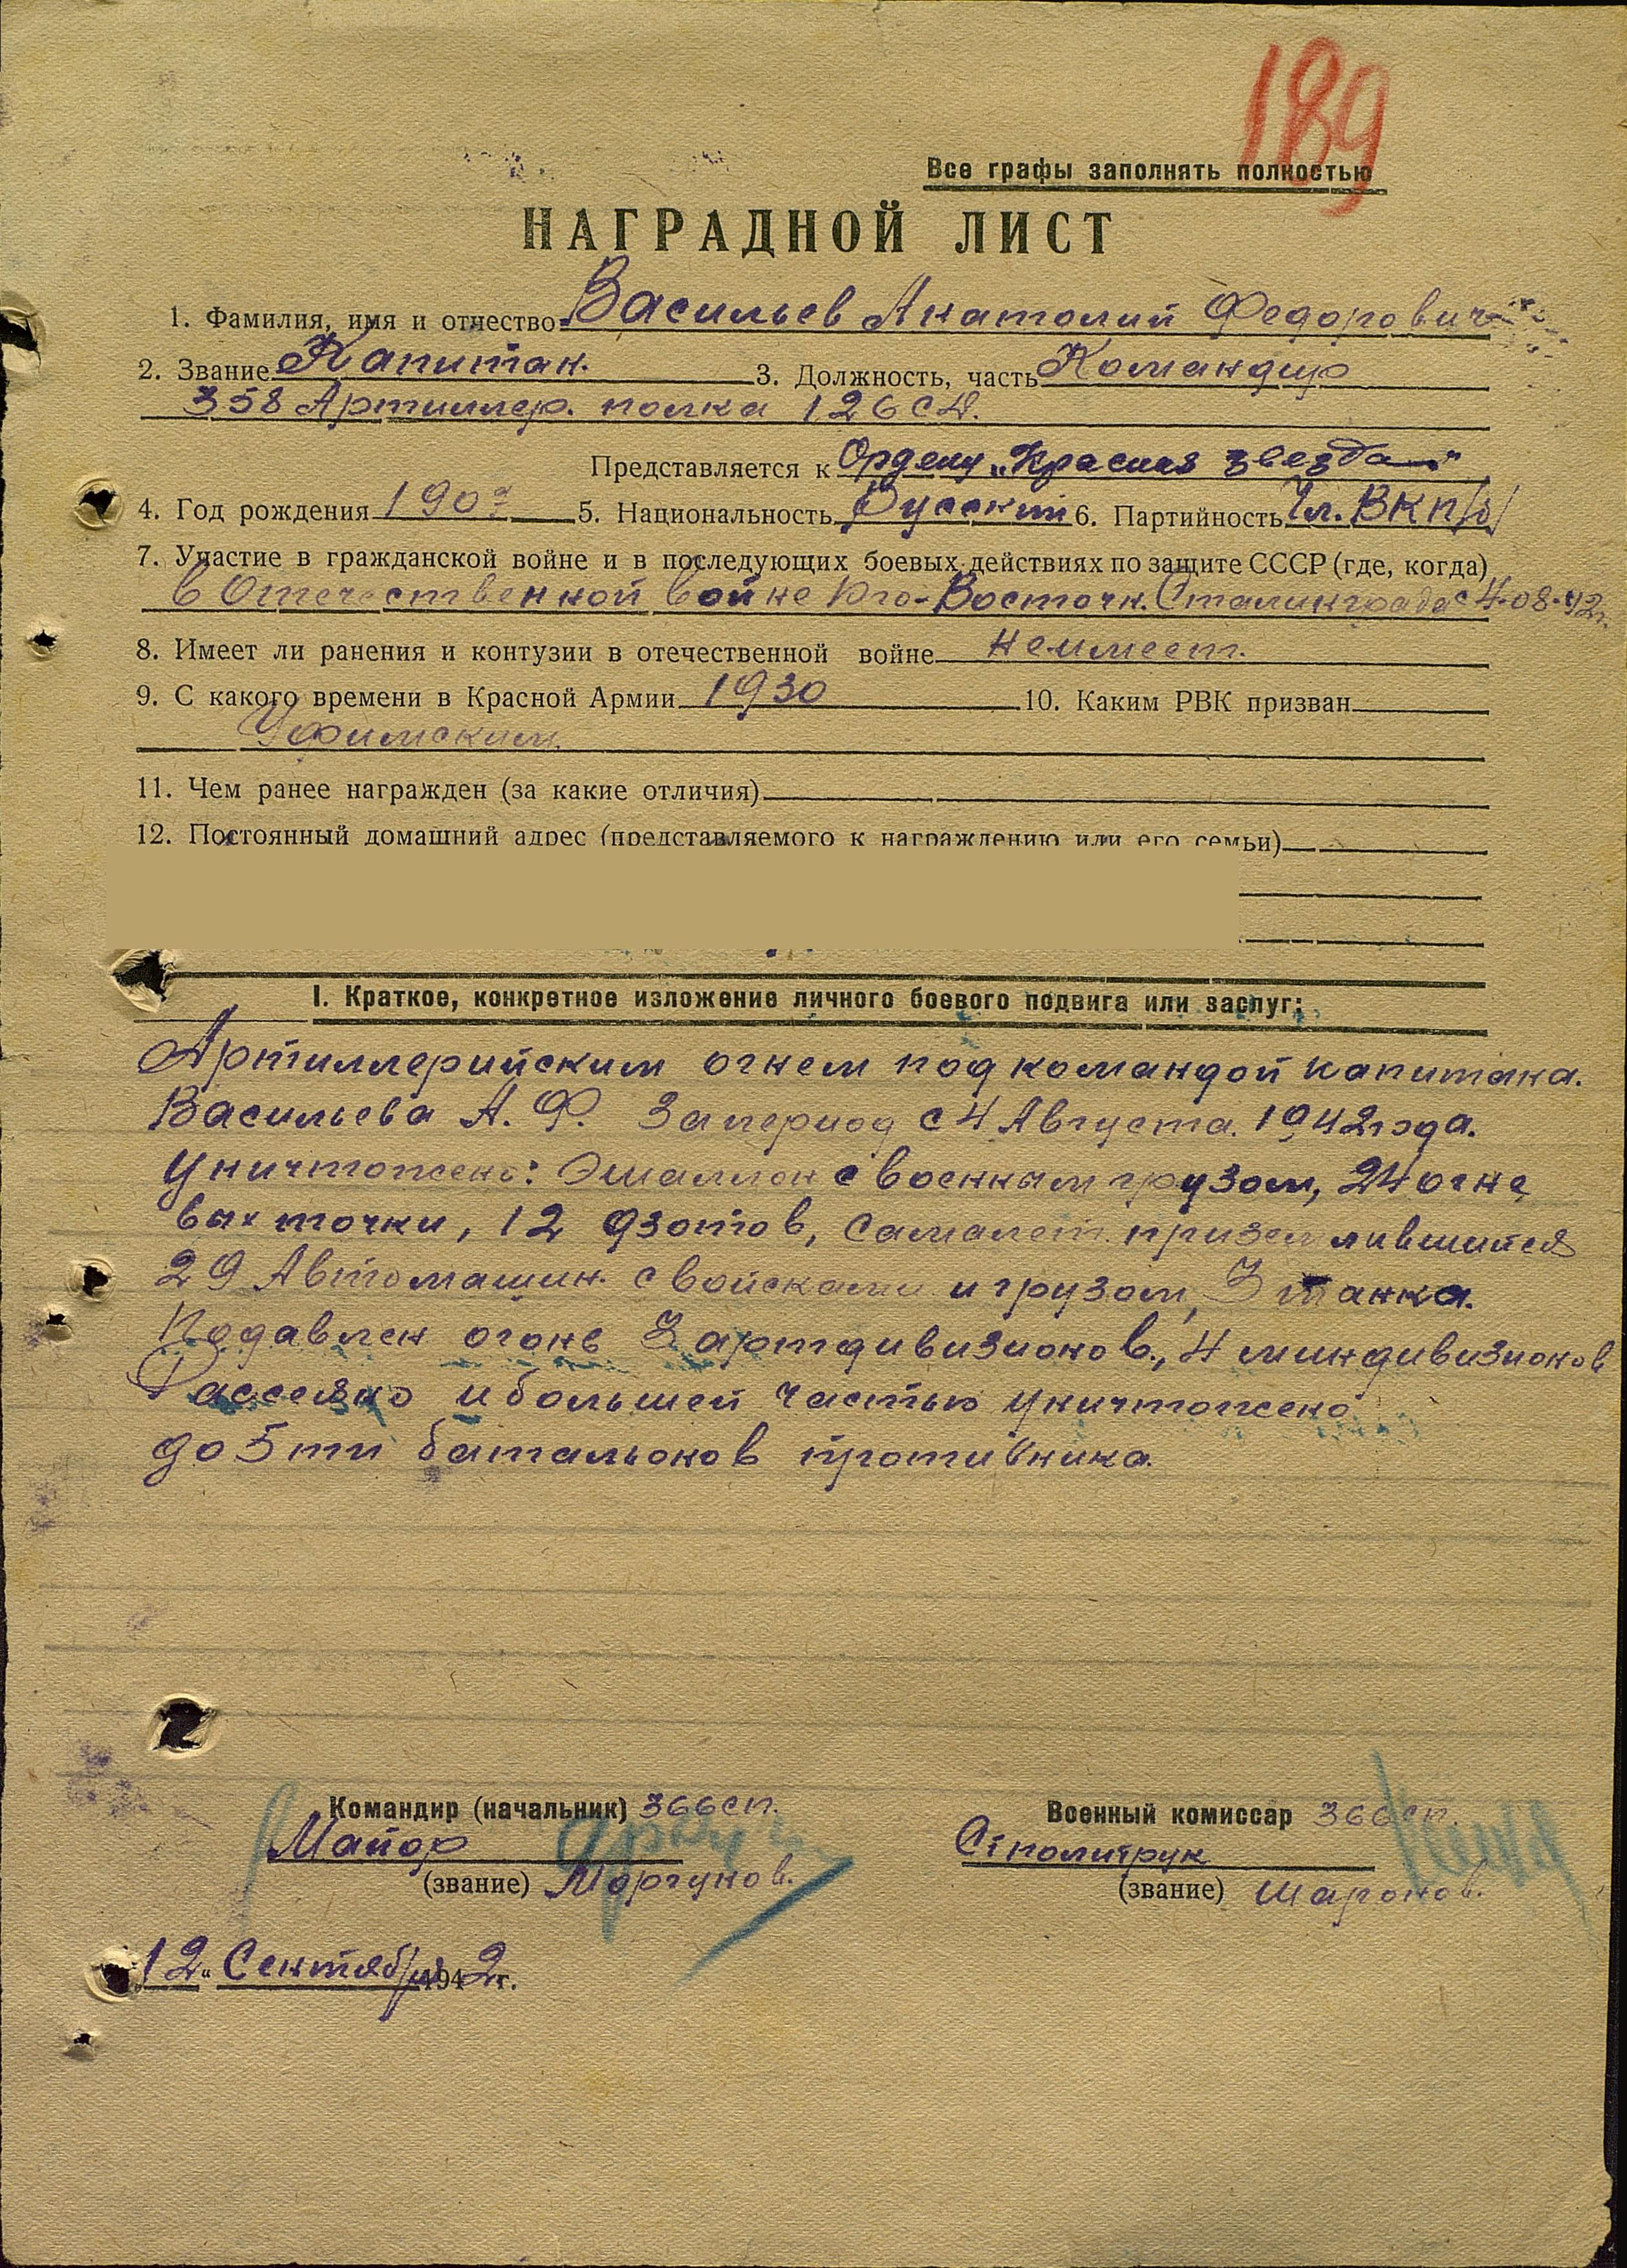 189
Все графы заполнять полностью
НАГРАДНОЙ ЛИСТ
1. Фамилия, имя и отчество Васильев Анатолий Федорович
2. Звание Капитан. 3. Должность, часть Командир
358 Артиллер. полка 126 СД.
Представляется к Ордену „Красная звезда"
4. Год рождения 5. Национальность Русский 6. Партийность Чл. ВКП/б/
7. Участие в гражданской войне и в последующих боевых действиях по защите СССР (где, когда)
в Отечественной войне Юго-Восточн. Сталинграда с 4-08-42г.
8. Имеет ли ранения и контузии в отечественной войне неимеет.
9. С какого времени в Красной Армии 1930 10. Каким РВК призван
Уфимским.
11. Чем ранее награжден (за какие отличия)
12. Постоянный домашний адрес (представляемого к награждению или его семьи)
I. Краткое, конкретное изложение личного боевого подвига или заслуг:
Артиллерийским огнем под командой капитана.
Васильева А. Ф. За период с 4 Августа. 1942 года.
Уничтожено: Эшаллон с военным грузом, 24 огне
вых точки, 12 дзотов, самалет приземлившийся
29 Автомашин. с войсками и грузом, 3 танка.
Подавлен огонь 3 артдивизионов., 4 миндивизионов
Рассеяно и большей частью уничтожено
до 5ти батальонов противника.
Командир (начальник) 366 сп. Военный комиссар 366 сп.
Майор Ст политрук
(звание) Моргунов. (звание) Шаронов.
12„ Сентября 1942г.